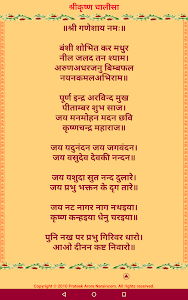 श्रीकृष्ण चालीसा
॥श्री गणेशाय नमः॥
बंशी शोभित कर मधुर
नील जलद तन श्याम।
अरुणअधरजनु बिम्बफल
नयनकमलअभिराम॥
पूर्ण इन्द्र अरविन्द मुख
पीताम्बर शुभ साज।
जय मनमोहन मदन छवि
कृष्णचन्द्र महाराज॥
जय यदुनंदन जय जगवंदन।
जय वसुदेव देवकी नन्दन॥
जय यशुदा सुत नन्द दुलारे।
जय प्रभु भक्तन के दृग तारे॥
जय नट नागर नाग नथइया।
कृष्ण कन्हइया धेनु चरइया॥
पुनि नख पर प्रभु गिरिवर धारो।
आओ दीनन कष्ट निवारो॥
Copyright © 2010 Prateek Arora Narasicom. All rights reserved.